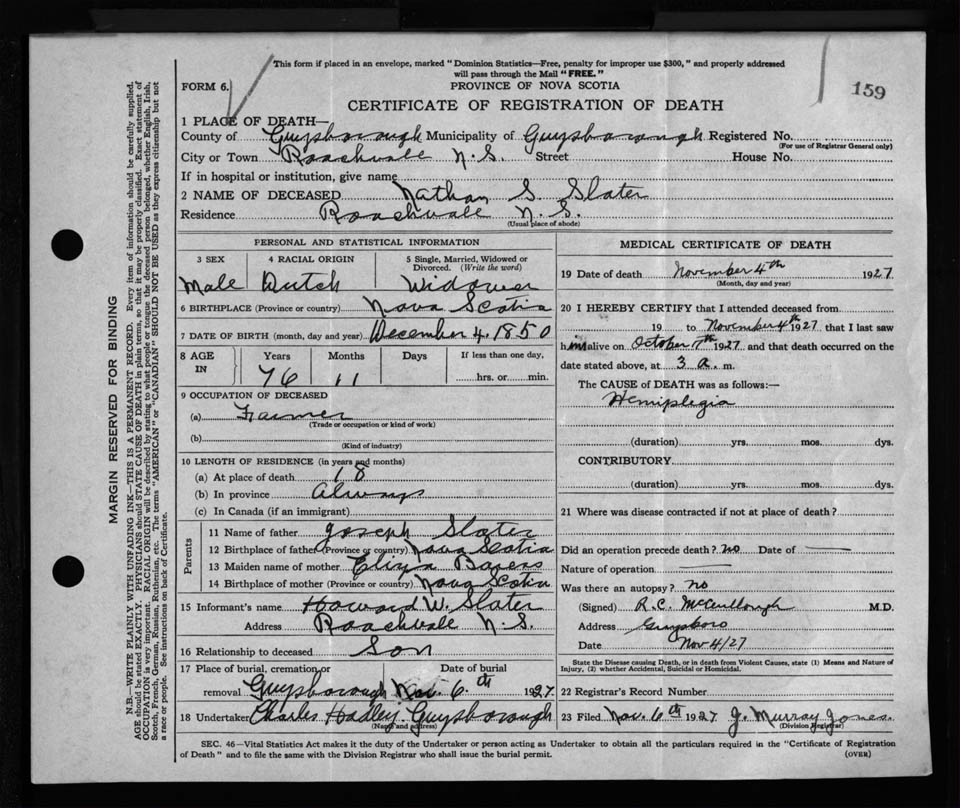 This form if placed in an envelope, marked "Dominion Statistics—Free, penalty for improper use $300," and properly addressed
will pass through the Mail "FREE."
FORM 6.
PROVINCE OF NOVA SCOTIA
159
CERTIFICATE OF REGISTRATION OF DEATH
1 PLACE OF DEATH—
County of Guysborough Municipality of Guysborough Registered No.
(For use of Registrar General only)
City or Town Roachvale N.S. Street House No.
If in hospital or institution, give name
2 NAME OF DECEASED Nathan S. Slater
Residence Roachvale N.S.
(Usual place of abode)
PERSONAL AND STATISTICAL INFORMATION
3 SEX 4 RACIAL ORIGIN 5 Single, Married, Widowed or
Divorced. (Write the word)
Male Dutch Widower
6 BIRTHPLACE (Province or country) Nova Scotia
7 DATE OF BIRTH (month, day and year) December 4, 1850
8 AGE IN Years Months Days If less than one day,
76 11 hrs. or min.
9 OCCUPATION OF DECEASED
(a) Farmer
(Trade or occupation or kind of work)
(b)
(Kind of industry)
10 LENGTH OF RESIDENCE (in years and months)
(a) At place of death 18
(b) In province Always
(c) In Canada (if an immigrant)
Parents
11 Name of father Joseph Slater
12 Birthplace of father (Province or country) Nova Scotia
13 Maiden name of mother Eliza
14 Birthplace of mother (Province or country) Nova Scotia
15 Informant's name Howard W. Slater
Address Roachvale N.S.
16 Relationship to deceased Son
17 Place of burial, cremation, or Date of burial
removal Guysborough Nov. 6.th 1927.
18 Undertaker Charles Hadley Guysborough
(Name and address)
MEDICAL CERTIFICATE OF DEATH
19 Date of death November 4th 1927
(Month, day and year)
20 I HEREBY CERTIFY that I attended deceased from
19 to November 4th 1927 that I last saw
him alive on October 7th 1927 and that death occurred on the
date stated above, at 3 a. m.
The CAUSE of DEATH was as follows:—
Hemiplegia
(duration) yrs. mos. dys.
CONTRIBUTORY
(duration) yrs. mos. dys.
21 Where was disease contracted if not at place of death?
Did an operation precede death? no Date of —
Nature of operation —
Was there an autopsy? no
(Signed) R.C. McCullough M.D.
Address Guysboro
Date Nov 4/27
State the Disease causing Death, or in death from Violent Causes, state (1) Means and Nature of
Injury, (2) whether Accidental, Suicidal or Homicidal.
22 Registrar's Record Number
23 Filed Nov. 6th 1927 J. Murray Jones.
(Division Registrar)
SEC. 46—Vital Statistics Act makes it the duty of the Undertaker or person acting as Undertaker to obtain all the particulars required in the "Certificate of Registration
of Death" and to file the same with the Division Registrar who shall issue the burial permit.
(OVER)
MARGIN RESERVED FOR BINDING
N.B.—WRITE PLAINLY WITH UNFADING INK—THIS IS A PERMANENT RECORD. Every item of information should be carefully supplied.
AGE should be stated EXACTLY. PHYSICIANS should STATE CAUSE OF DEATH in plain terms, so that it may be properly classified. Exact statement of
OCCUPATION is very important. RACIAL ORIGIN will be described by stating to what people or tongue the deceased person belonged, whether English, Irish,
Scotch, French, German, Russian, Ruthenian, etc. The terms "AMERICAN" or "CANADIAN" SHOULD NOT BE USED as they express citizenship but not
a race or people. See instructions on back of Certificate.